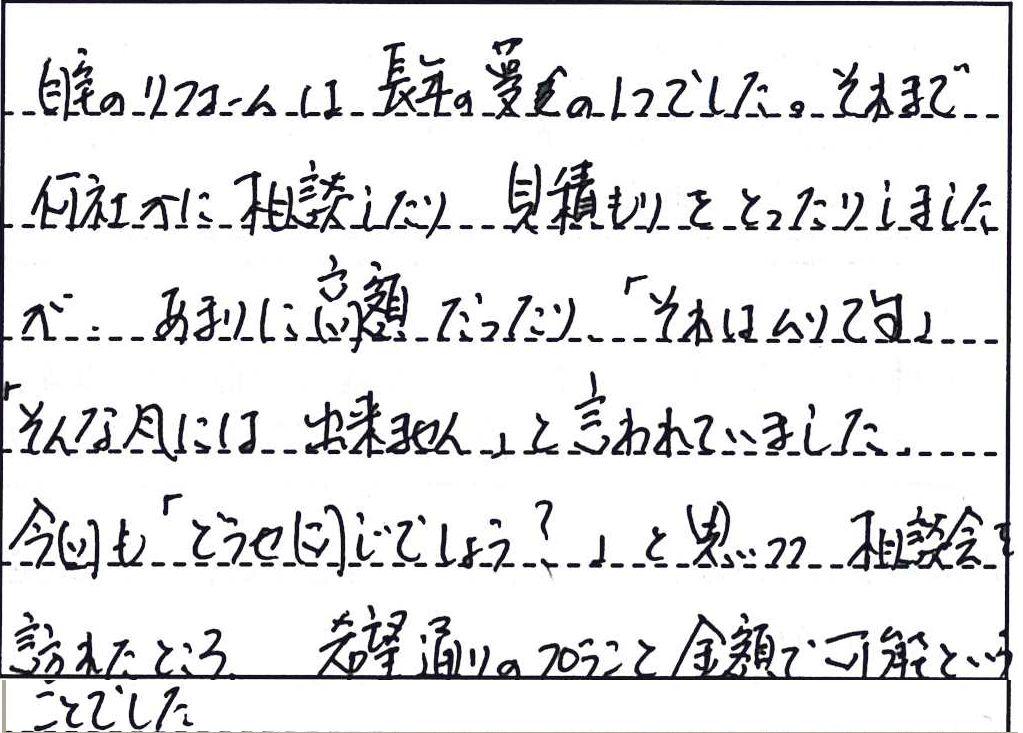 自宅のリフォームは長年の夢の1つでした。それまで
何社かに相談したり 見積もりをとったりしました
が、あまりに高額だったり、「それはムリです」
「そんな風には出来ません」と言われていました。
今回も「どうせ同じでしょう?」と思いつつ 相談会を
訪れたところ、希望通りのプランと金額で可能という
ことでした